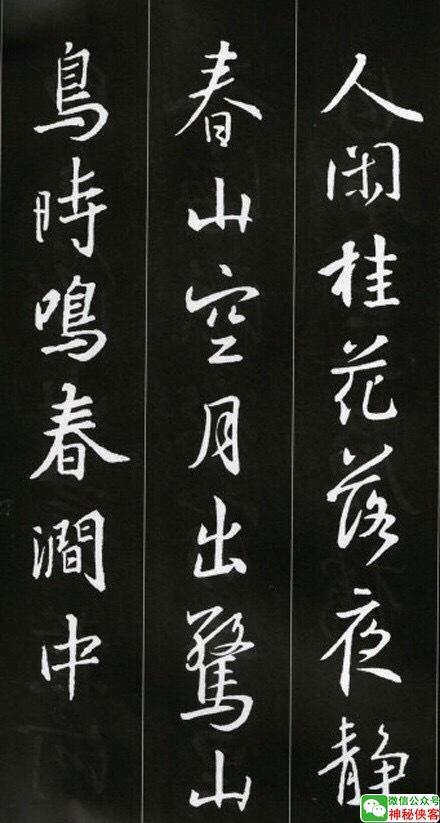 人闲桂花落夜静
春山空月出驚山
鳥時鳴春澗中
微信公众号
神秘侠客